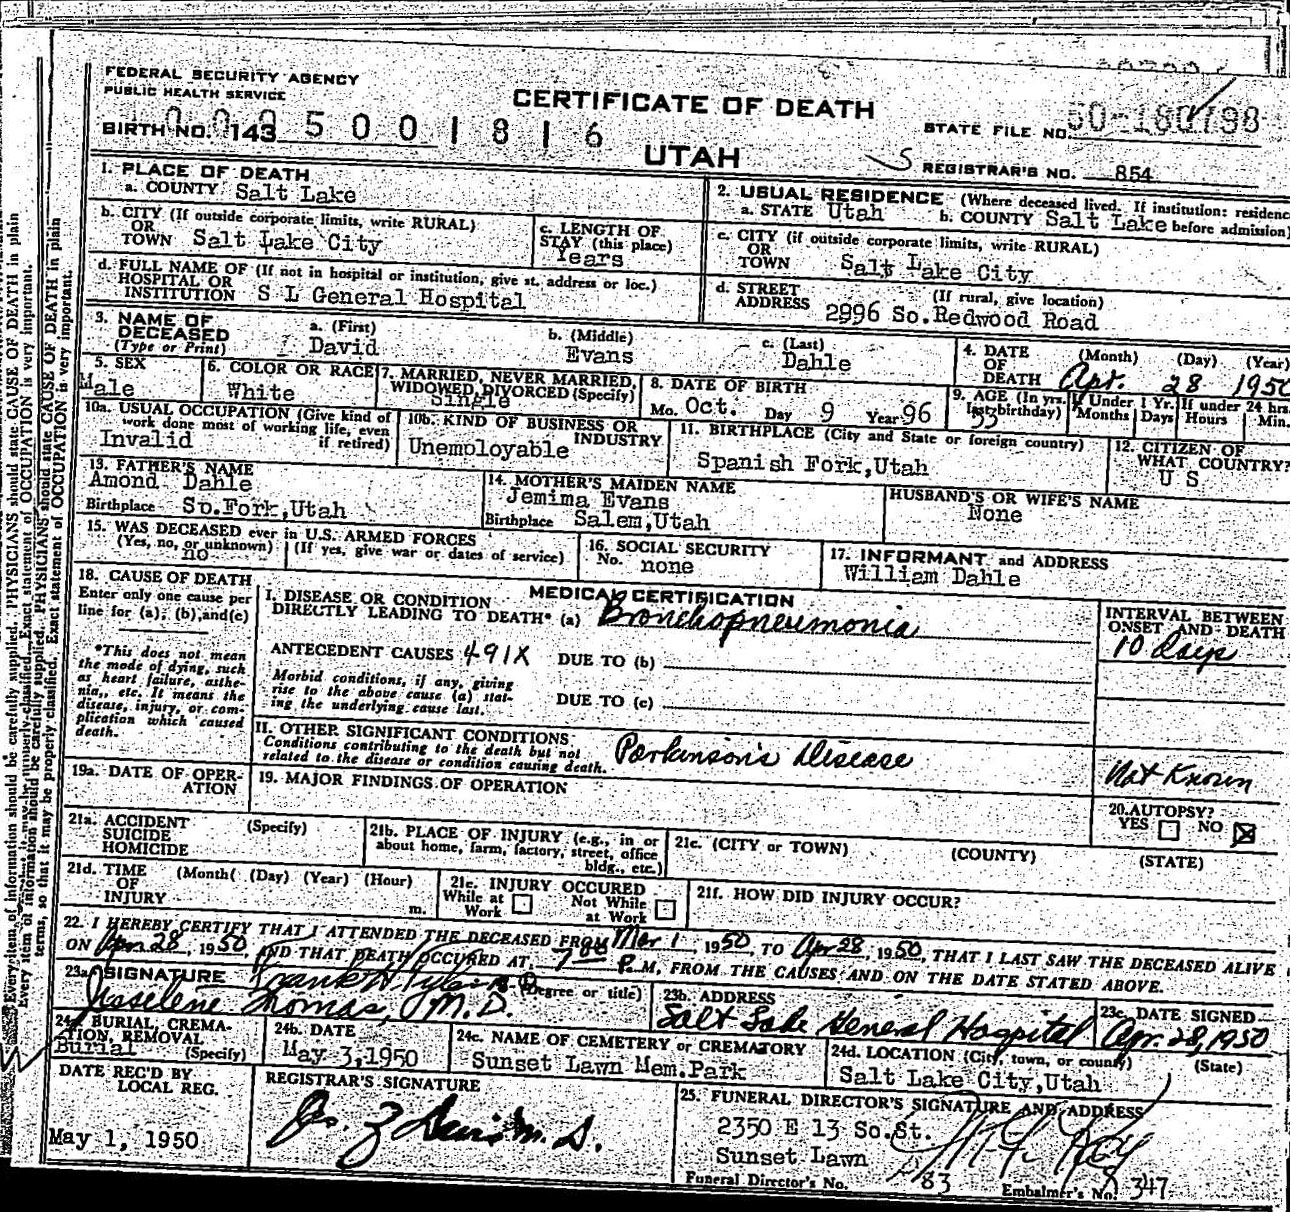 FEDERAL SECURITY AGENCY
PUBLIC HEALTH SERVICE
CERTIFICATE OF DEATH
UTAH
BIRTH NO. 143
5 0 0 1 8 1 6
STATE FILE NO.
REGISTRAR'S NO. 854
1. PLACE OF DEATH
a. COUNTY Salt Lake
b. CITY (If outside corporate limits, write RURAL)
OR
TOWN Salt Lake City
c. LENGTH OF
STAY (this place)
Years
d. FULL NAME OF (If not in hospital or institution, give st. address or loc.)
HOSPITAL OR
INSTITUTION S L General Hospital
2. USUAL RESIDENCE (Where deceased lived. If institution: residence
a. STATE Utah b. COUNTY Salt Lake before admission)
c. CITY (if outside corporate limits, write RURAL)
OR
TOWN Salt Lake City
d. STREET (If rural, give location)
ADDRESS 2996 So.Redwood Road
3. NAME OF
DECEASED
(Type or Print)
a. (First) b. (Middle) c. (Last)
David Evans Dahle
4. DATE (Month) (Day) (Year)
OF
DEATH Apr. 28 1950
5. SEX
Male
6. COLOR OR RACE
White
7. MARRIED, NEVER MARRIED,
WIDOWED, DIVORCED (Specify)
Single
8. DATE OF BIRTH
Mo. Oct. Day 9 Year 96
9. AGE (In yrs. If Under 1 Yr. If under 24 hrs.
last birthday) Months Days Hours Min.
53
10a. USUAL OCCUPATION (Give kind of
work done most of working life, even
if retired)
Invalid
10b. KIND OF BUSINESS OR
INDUSTRY
Unemployable
11. BIRTHPLACE (City and State or foreign country)
Spanish Fork,Utah
12. CITIZEN OF
WHAT COUNTRY?
U S
13. FATHER'S NAME
Amond Dahle
Birthplace Sp.Fork,Utah
14. MOTHER'S MAIDEN NAME
Jemima Evans
Birthplace Salem,Utah
HUSBAND'S OR WIFE'S NAME
None
15. WAS DECEASED ever in U.S. ARMED FORCES
(Yes, no, or unknown) (If yes, give war or dates of service)
no
16. SOCIAL SECURITY
No. none
17. INFORMANT and ADDRESS
William Dahle
18. CAUSE OF DEATH
Enter only one cause per
line for (a), (b), and (c)
*This does not mean
the mode of dying, such
as heart failure, asthe-
nia,, etc. It means the
disease, injury, or com-
plication which caused
death.
MEDICAL CERTIFICATION
I. DISEASE OR CONDITION
DIRECTLY LEADING TO DEATH* (a) Bronchopneumonia
ANTECEDENT CAUSES 491X DUE TO (b)
Morbid conditions, if any, giving
rise to the above cause (a) stat-
ing the underlying cause last.
DUE TO (c)
II. OTHER SIGNIFICANT CONDITIONS
Conditions contributing to the death but not
related to the disease or condition causing death.
Parkinson's Disease
INTERVAL BETWEEN
ONSET AND DEATH
10 days
Not Known
19a. DATE OF OPER-
ATION
19. MAJOR FINDINGS OF OPERATION
20. AUTOPSY?
YES NO
21a. ACCIDENT (Specify)
SUICIDE
HOMICIDE
21b. PLACE OF INJURY (e.g., in or
about home, farm, factory, street, office
bldg., etc.)
21c. (CITY or TOWN) (COUNTY) (STATE)
21d. TIME (Month( (Day) (Year) (Hour)
OF
INJURY m.
21e. INJURY OCCURED
While at Not While
Work at Work
21f. HOW DID INJURY OCCUR?
22. I HEREBY CERTIFY THAT I ATTENDED THE DECEASED FROM Mar 1 1950 TO Apr 28, 1950, THAT I LAST SAW THE DECEASED ALIVE
ON Apr 28, 1950, AND THAT DEATH OCCURED AT 7 P.M, FROM THE CAUSES AND ON THE DATE STATED ABOVE.
23a. SIGNATURE Frank H. Tyler (Degree or title)
Thomas, M.D.
23b. ADDRESS
Salt Lake General Hospital
23c. DATE SIGNED
Apr. 28, 1950
24a. BURIAL, CREMA-
TION, REMOVAL
Burial (Specify)
24b. DATE
May 3,1950
24c. NAME OF CEMETERY or CREMATORY
Sunset Lawn Mem.Park
24d. LOCATION (City, town, or county) (State)
Salt Lake City,Utah
DATE REC'D BY
LOCAL REG.
May 1, 1950
REGISTRAR'S SIGNATURE
25. FUNERAL DIRECTOR'S SIGNATURE AND ADDRESS
2350 E 13 So.St.
Sunset Lawn
Funeral Director's No. 83 Embalmer's No. 347
Every item of information should be carefully supplied. PHYSICIANS should state CAUSE OF DEATH in plain
terms, so that it may be properly classified. Exact statement of OCCUPATION is very important.